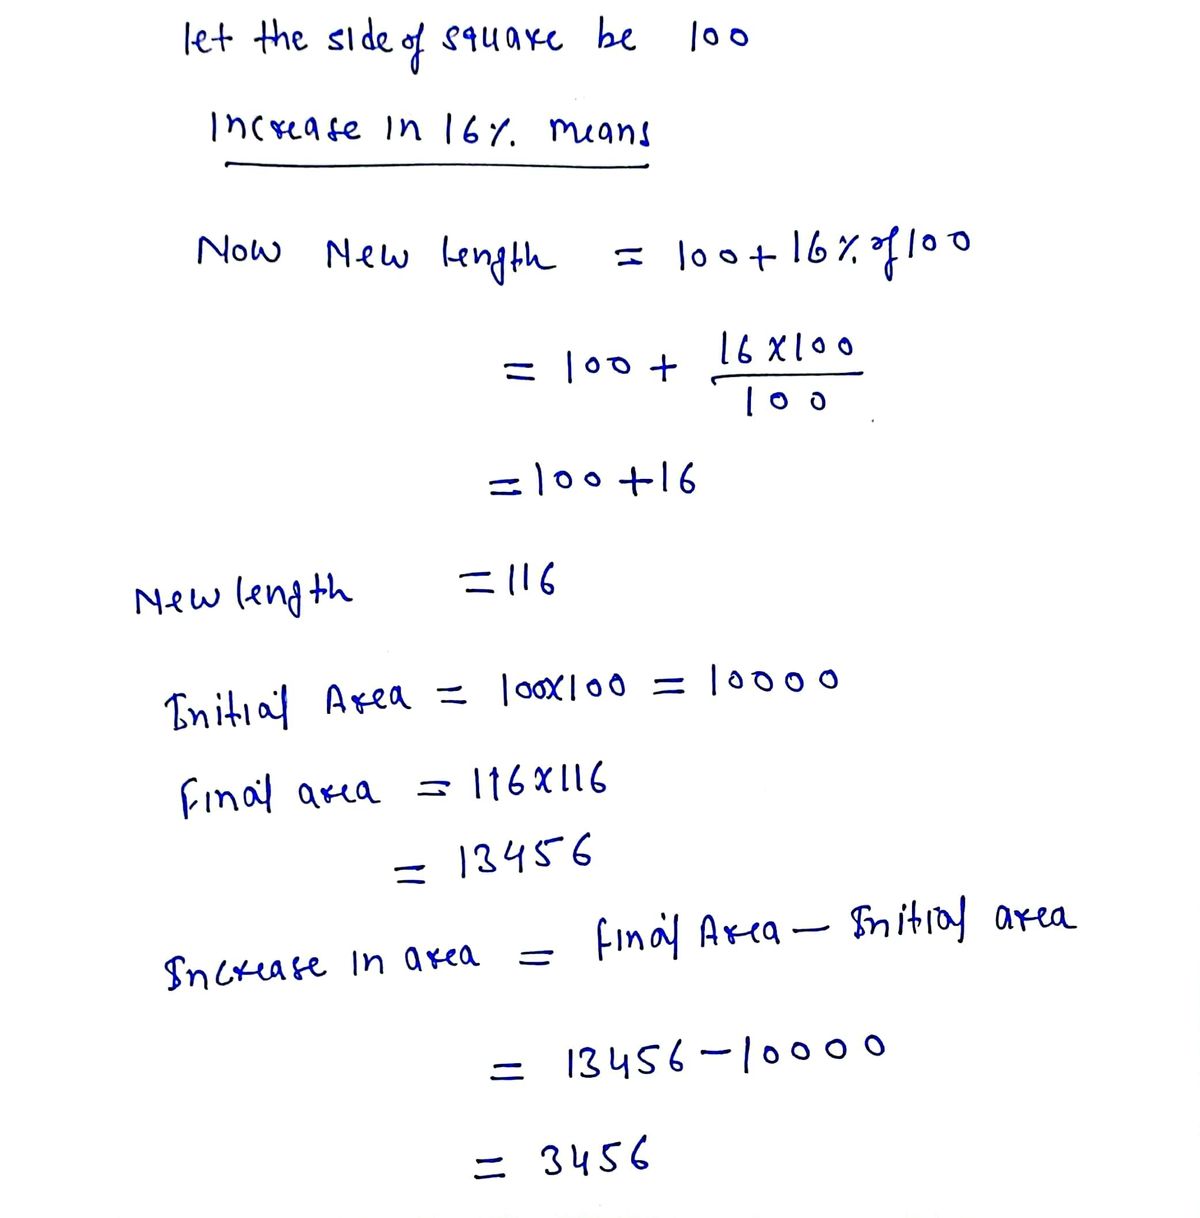 let the side of square be 100
Increase in 16% means
Now New length = 100 + 16% of 100
= 100 + 16 x 100 / 100
= 100 + 16
New length = 116
Initial Area = 100x100 = 10000
Final area = 116x116
= 13456
Increase in area = final Area - Initial area
= 13456 - 10000
= 3456